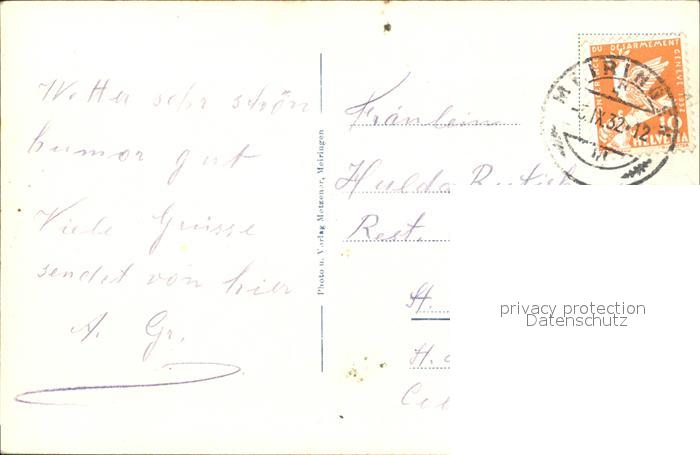 Wetter sehr schön
humor gut
Viele Grüsse
sendet von hier
A. Gr.
Photo u. Verlag Metzener, Meiringen
Fräulein
Hulda
Rest.
St.
CONFERENCE DU DESARMEMENT GENEVE 1932
10
HELVETIA
MEIRINGEN
IX.32-12
privacy protection
Datenschutz